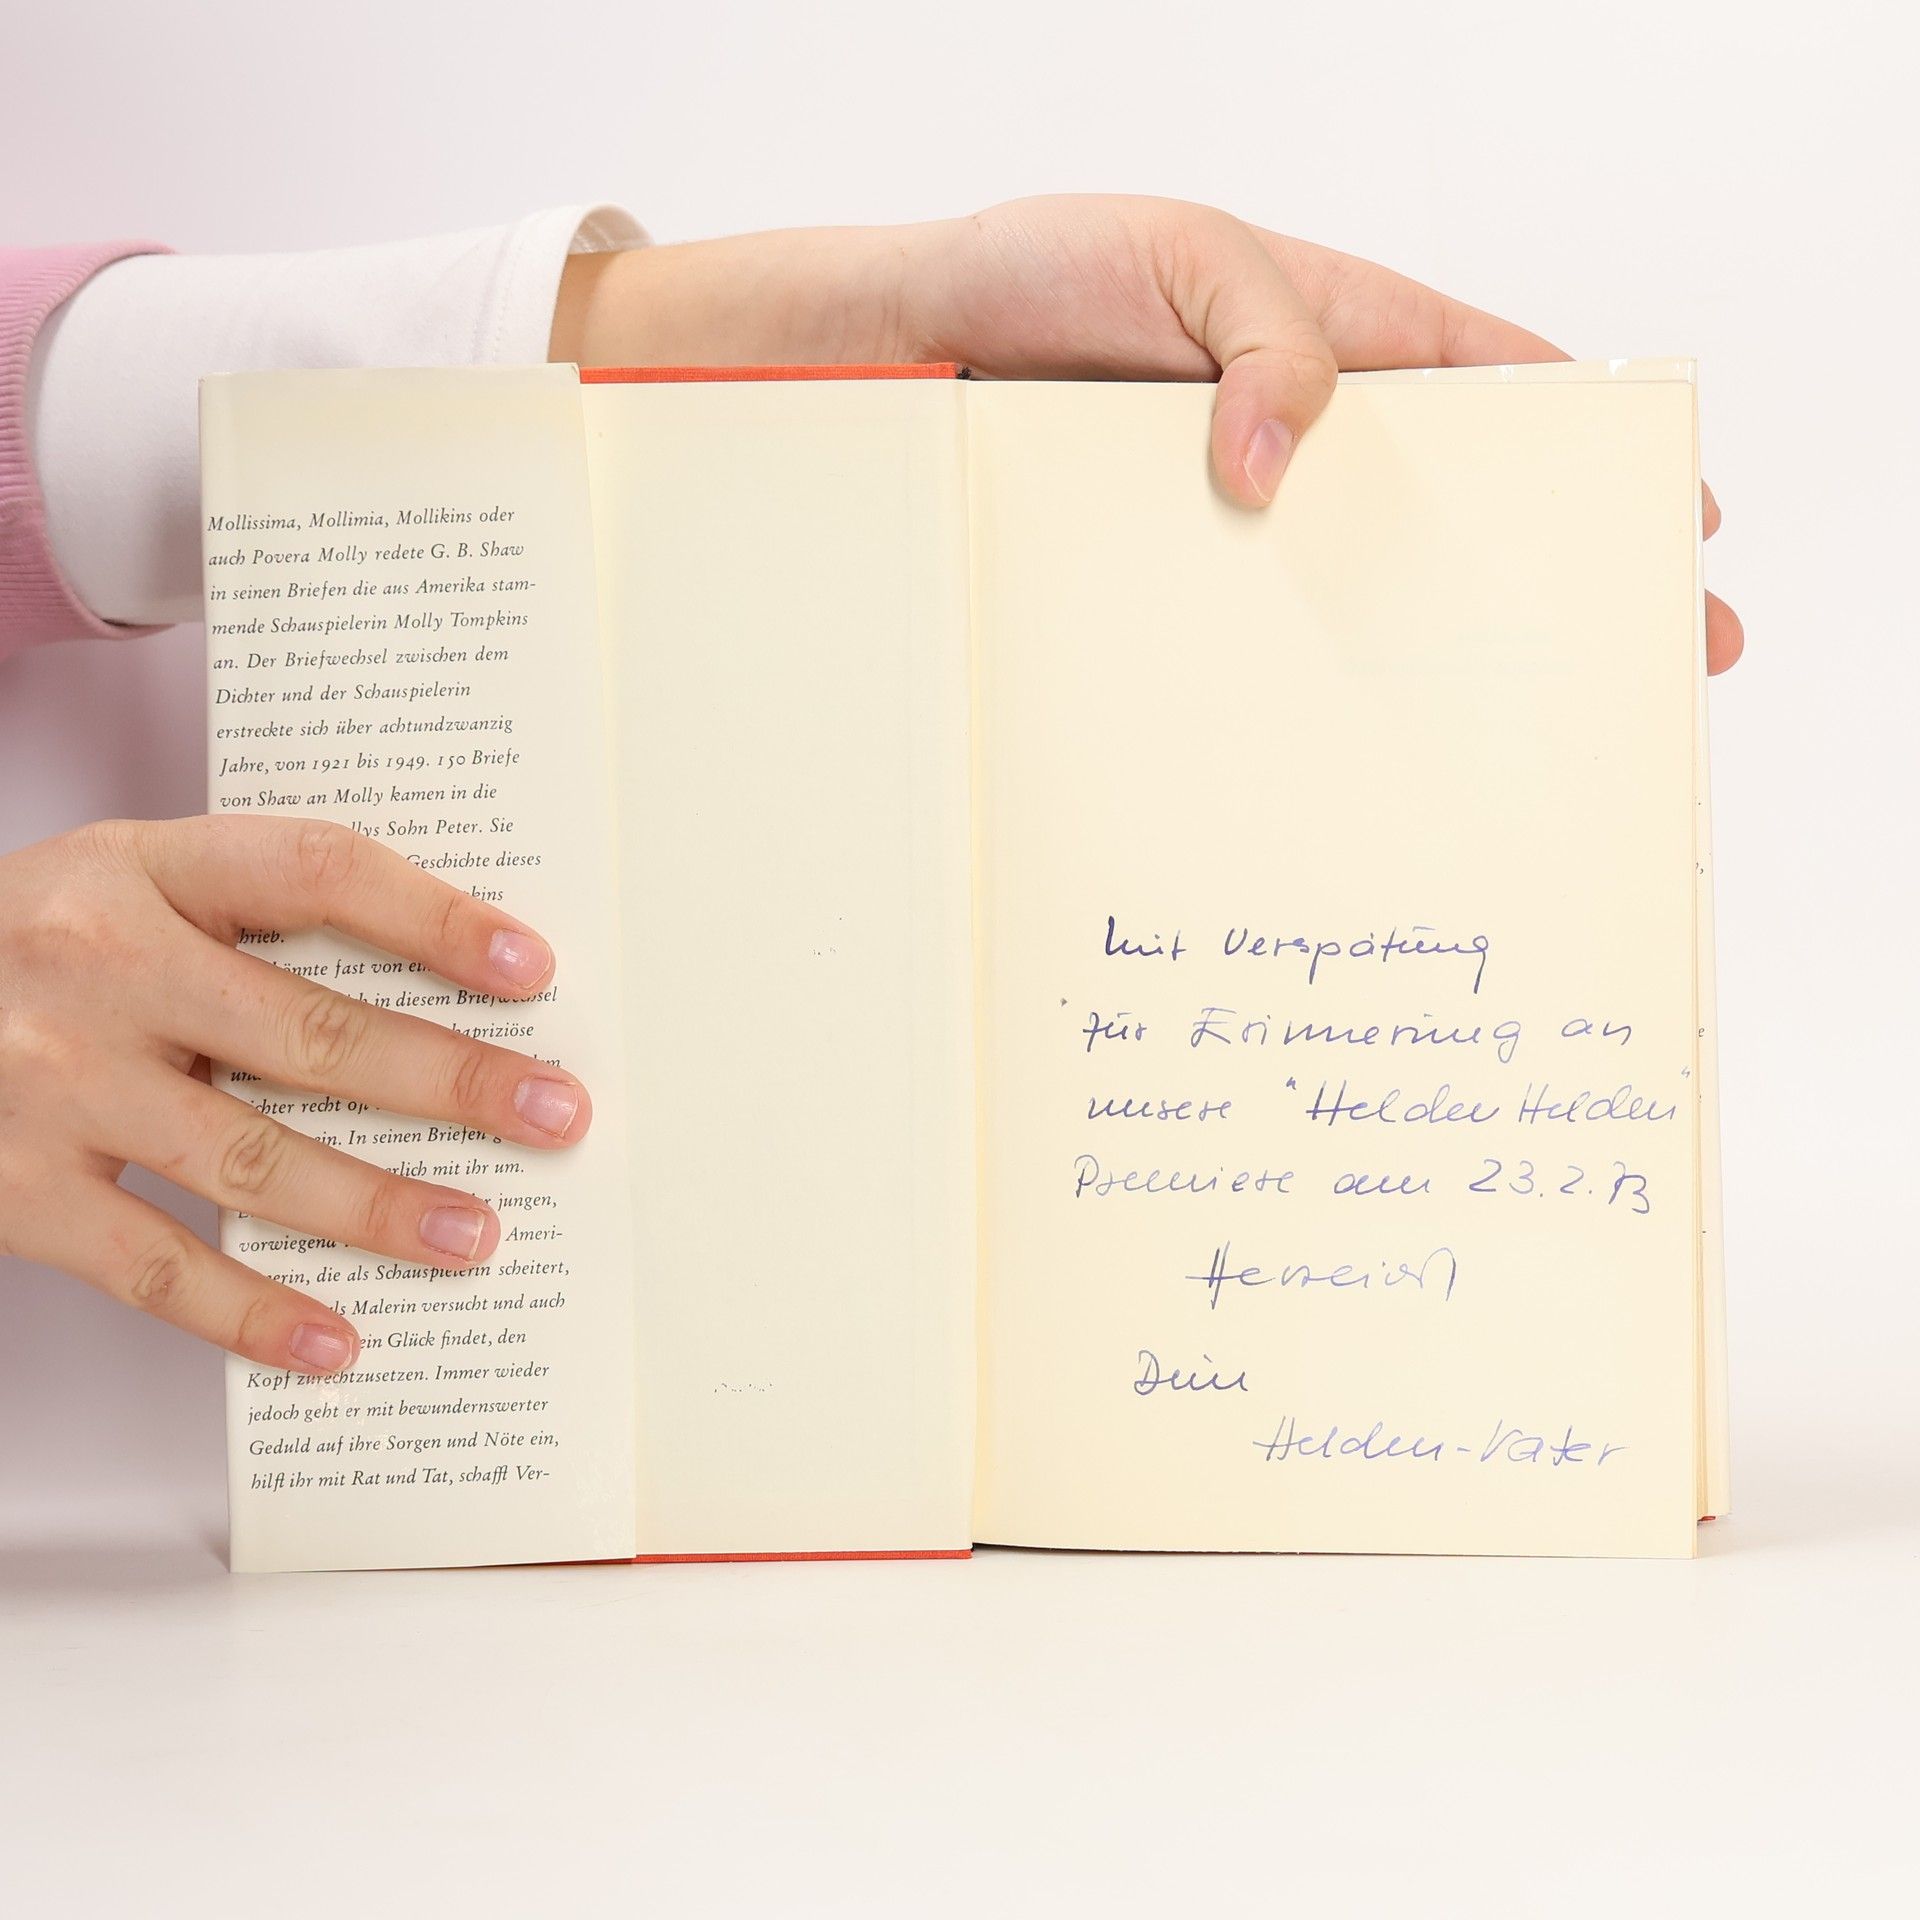 Mollissima, Mollimia, Mollikins oder
auch Povera Molly redete G. B. Shaw
in seinen Briefen die aus Amerika stam-
mende Schauspielerin Molly Tompkins
an. Der Briefwechsel zwischen dem
Dichter und der Schauspielerin
erstreckte sich über achtundzwanzig
Jahre, von 1921 bis 1949. 150 Briefe
von Shaw an Molly kamen in die
llys Sohn Peter. Sie
Geschichte dieses
kins
hrieb.
önnte fast von
in diesem Briefwechsel
kapriziöse
recht
ein. In seinen Briefen
erlich mit ihr um.
jungen,
vorwiegend Ameri-
nerin, die als Schauspielerin scheitert,
als Malerin versucht und auch
ein Glück findet, den
Kopf zurechtzusetzen. Immer wieder
jedoch geht er mit bewundernswerter
Geduld auf ihre Sorgen und Nöte ein,
hilft ihr mit Rat und Tat, schafft Ver-
Mit Verspätung
zur Erinnerung an
unsere "Helden Helden"
Premiere am 23.2.73
Herzlichst
Dein
Helden-Vater